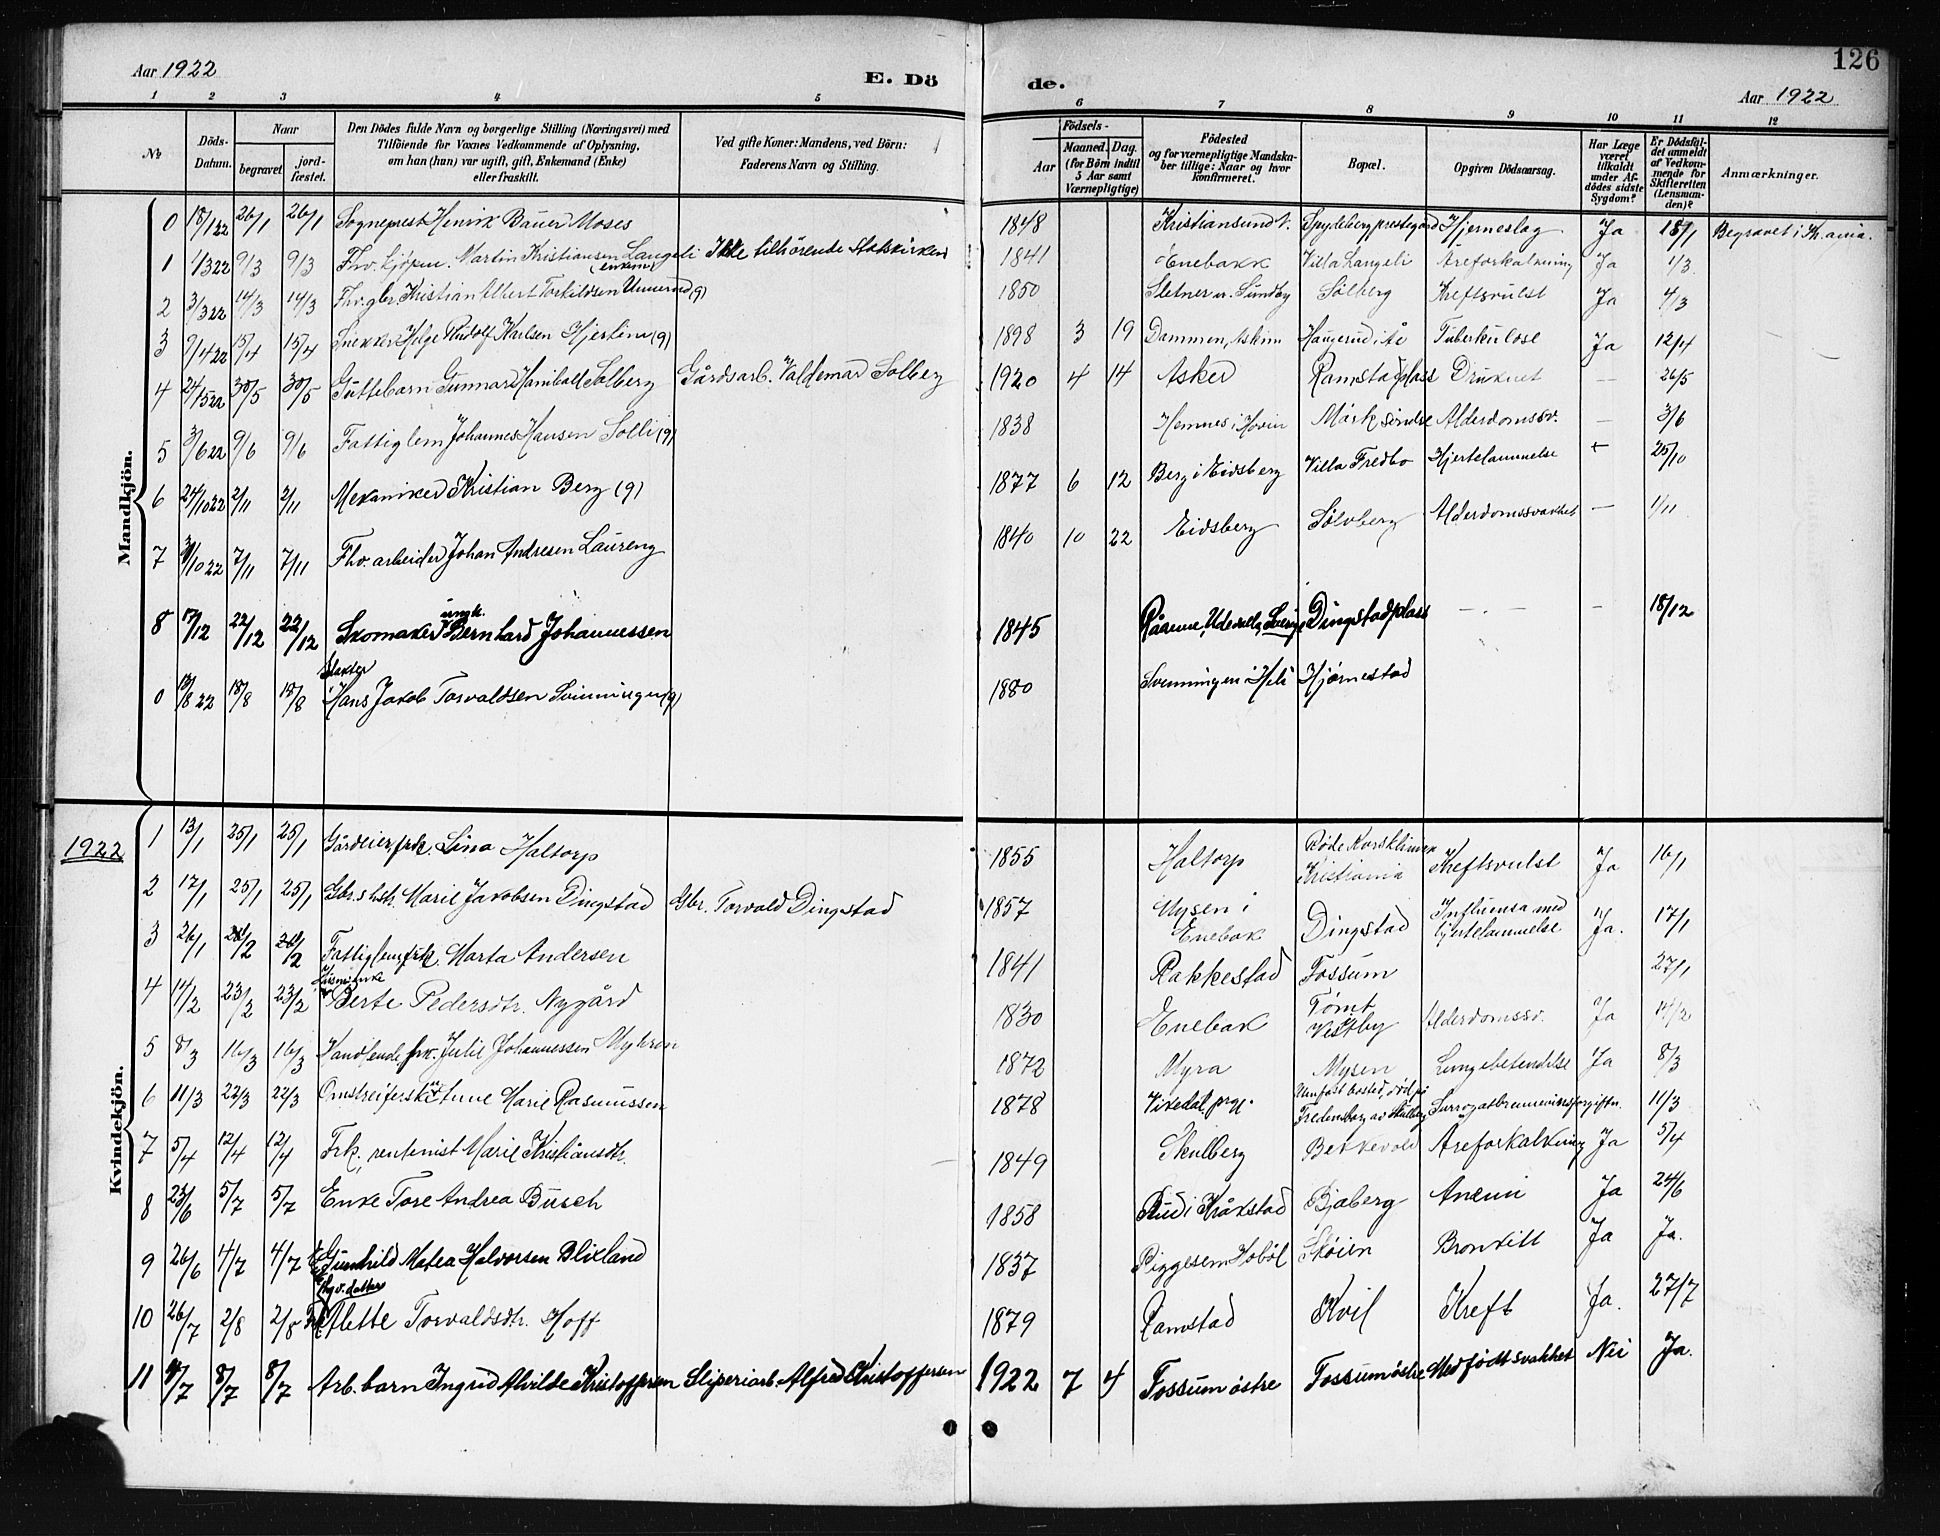 Aar 1922
E. Dö
de.
126
Aar 1922
1 2 3 4 5 6 7 8 9 10 11 12
№
Döds-Datum.
Naar
begravet
jordfæstet.
Den Dödes fulde Navn og borgerlige Stilling (Næringsvei) med
Tilföiende for Voxnes Vedkommende af Oplysning,
om han (hun) var ugift, gift, Enkemand (Enke)
eller fraskilt.
Ved gifte Koner: Mandens, ved Börn:
Faderens Navn og Stilling.
Födsels-
Aar
Maaned. Dag.
(for Börn indtil
5 Aar samt
Værnepligtige)
Födested
og for værnepligtige Mandskaber tillige: Naar og hvor
konfirmeret.
Bopæl.
Opgiven Dödsaarsag.
Har Læge
været
tilkaldt
under Afdödes sidste
Sygdom?
Er Dödsfaldet anmeldt
af Vedkommende for
Skifteretten
(Lensmanden)?
Anmærkninger.
Mandkjön.
0 18/1 22 26/1 26/1 Sogneprest Henrik Bauer Moses 1848 Kristiansund N. Spydeberg prestegård Hjerneslag Ja 18/1 Begravet i Kr.ania.
1 1/3 22 9/3 9/3 Fhv. Martin Kristiansen Langeli (enkem) Ikke tilhørende Statskirken 1841 Enebakk Villa Langeli Åreforkalkning Ja 1/3
2 3/3 22 14/3 14/3 Fhv. gbr. Kristian Albert Torkildsen Unnerud (g) 1850 Sletner v. Sundby Sølberg Kreftsvulst Ja 4/3
3 9/4 22 15/4 15/4 Snekker Helge Rudolf Karlsen Hjerlinn (g) 1898 3 19 Dammen, Askim Haugerud i Ås Tuberkulose Ja 12/4
4 24/5 22 30/5 30/5 Guttebarn Gunnar Hanibal Solberg Gårdsarb. Valdemar Solberg 1920 4 14 Asker Ramstadplass Druknet — 26/5
5 3/6 22 9/6 9/6 Fattiglem Johannes Hansen Solli (g) 1838 Hemnes i Hovin Mørk søndre Alderdomssv. — 3/6
6 24/10 22 2/11 2/11 Mekaniker Kristian Berg (g) 1877 6 12 Berg i Eidsberg Villa Fredbo Hjertelammelse + 25/10
7 30/10 22 7/11 7/11 Fhv. arbeider Johan Andresen Laureng 1840 10 22 Eidsberg Sølvberg Alderdomssvakhet — 1/11
8 17/12 22/12 22/12 Skomaker ungk. Bernhard Johannessen 1845 Uddevalla, Sverige Dingstadplass — . — — 18/12
0 13/8 22 18/8 18/8 Slakter Hans Jakob Torvaldsen Svinningen (g) 1880 Svenningen i Heli Hjørnestad
1922
Kvindekjön.
1 13/1 25/1 25/1 Gårdeier, frk. Lina Haltorp 1855 Haltorp Røde Korsklinikk Kristiania Kreftsvulst Ja 16/1
2 17/1 25/1 25/1 Gbr.s hstr. Marie Jakobsen Dingstad Gbr. Torvald Dingstad 1857 Mysen i Enebak Dingstad Influensa med hjertelammelse Ja. 17/1
3 26/1 Fattiglem, frk. Marta Andersen 1841 Rakkestad Fossum 27/1
4 14/2 23/2 23/2 Husm.enke Berte Pedersdtr. Nygård 1830 Enebak Tomt Vestby Alderdomssv. Ja 14/2
5 8/3 16/3 16/3 Handlende frk. Julie Johannessen Myhren 1872 Myra Mysen Lungebetendelse Ja 8/3
6 11/3 22/3 22/3 Omstreiferske Anne Marie Rasmussen 1878 Vikedal prgj. Uten fast bosted, død på Fredensborg av Skulberg Surrogatbrenneviinsforgiftn. 11/3
7 5/4 12/4 12/4 Frk., rentenist Marie Kristiansdtr. 1849 Skulberg Bekkevold Åreforkalkning Ja 5/4
8 23/6 5/7 5/7 Enke Tore Andrea Busch 1858 Rud i Kråkstad Bjaberg Anemi Ja 24/6
9 26/6 4/7 4/7 Gunhild Matea Halvorsen Blixland 1837 Riggesem Hobøl Skøien Bronkitt Ja Ja.
10 26/7 2/8 2/8 Frk. Alette Torvaldsdtr. Hoff 1879 Ramstad Kvil Kreft Ja. 27/7
11 4/7 8/7 8/7 Arb. barn Ingrid Alvilde Kristoffersen Sliperiarb. Alfred Kristoffersen 1922 7 4 Fossum østre Fossum østre Medfødt svakhet Nei Ja.